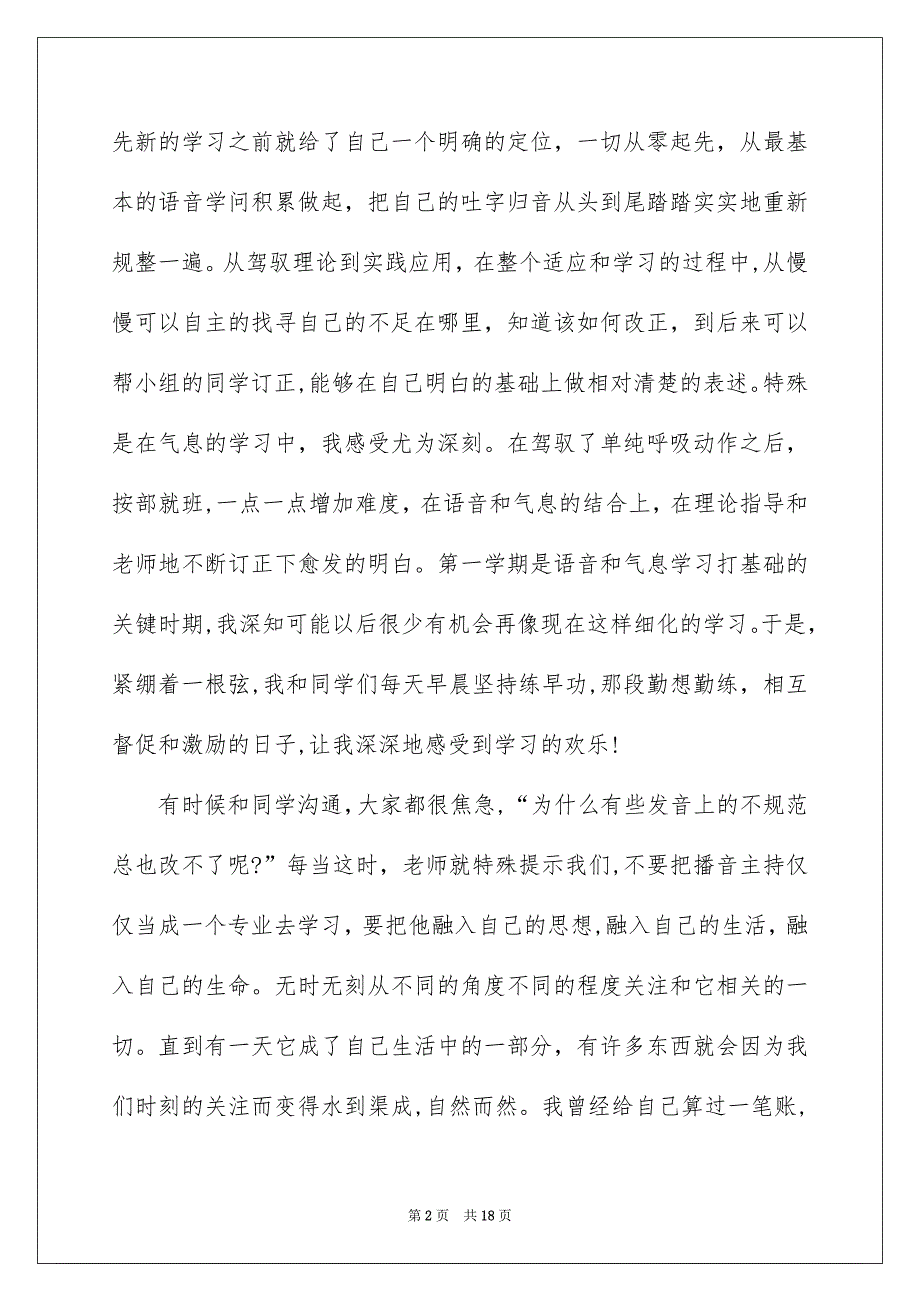 先新的学习之前就给了自己一个明确的定位，一切从零起先，从最基
本的语音学问积累做起，把自己的吐字归音从头到尾踏踏实实地重新
规整一遍。从驾驭理论到实践应用，在整个适应和学习的过程中,从慢
慢可以自主的找寻自己的不足在哪里，知道该如何改正，到后来可以
帮小组的同学订正,能够在自己明白的基础上做相对清楚的表述。特殊
是在气息的学习中，我感受尤为深刻。在驾驭了单纯呼吸动作之后，
按部就班,一点一点增加难度，在语音和气息的结合上，在理论指导和
老师地不断订正下愈发的明白。第一学期是语音和气息学习打基础的
关键时期,我深知可能以后很少有机会再像现在这样细化的学习。于是，
紧绷着一根弦,我和同学们每天早晨坚持练早功,那段勤想勤练，相互
督促和激励的日子,让我深深地感受到学习的欢乐!
有时候和同学沟通,大家都很焦急,“为什么有些发音上的不规范
总也改不了呢?”每当这时，老师就特殊提示我们,不要把播音主持仅
仅当成一个专业去学习，要把他融入自己的思想,融入自己的生活，融
入自己的生命。无时无刻从不同的角度不同的程度关注和它相关的一
切。直到有一天它成了自己生活中的一部分，有许多东西就会因为我
们时刻的关注而变得水到渠成,自然而然。我曾经给自己算过一笔账,
第 2 页 共 18 页